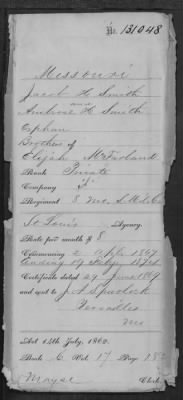 No. 131048
Missouri
Jacob H Smith
and
Ambrose H Smith
Orphan
Brothers of
Elijah McFarland
Rank Private
Company
Regiment 8 Mo. S.M. Cav
St Louis Agency.
Rate per month $ 8
Commencing 2 1867
Ending 14 July 1874
Certificate dated 29 June 1869
and sent to J. A. Spurlock
Versailles
Mo
Act 14th July, 1862.
Book 6 Vol. 17 Page 182
Clerk.